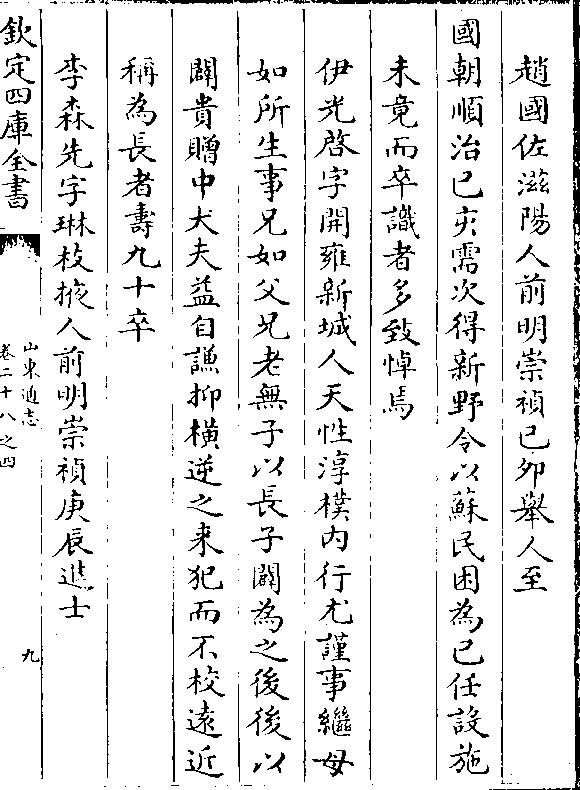 趙國佐滋陽人前明崇禎已夘舉人至
國朝順治已亥需次得新野令以蘇民困為已任設施
未竟而卒識者多致悼焉
伊光啓字開雍新城人天性淳樸内行尤謹事繼母
如所生事兄如父兄老無子以長子闢為之後後以
闢貴贈中大夫益自謙抑橫逆之来犯而不校遠近
稱為長者壽九十卒
李森先字琳枝掖人前明崇禎庚辰進士
欽定四庫全書
山東通志
卷二十八之四
九